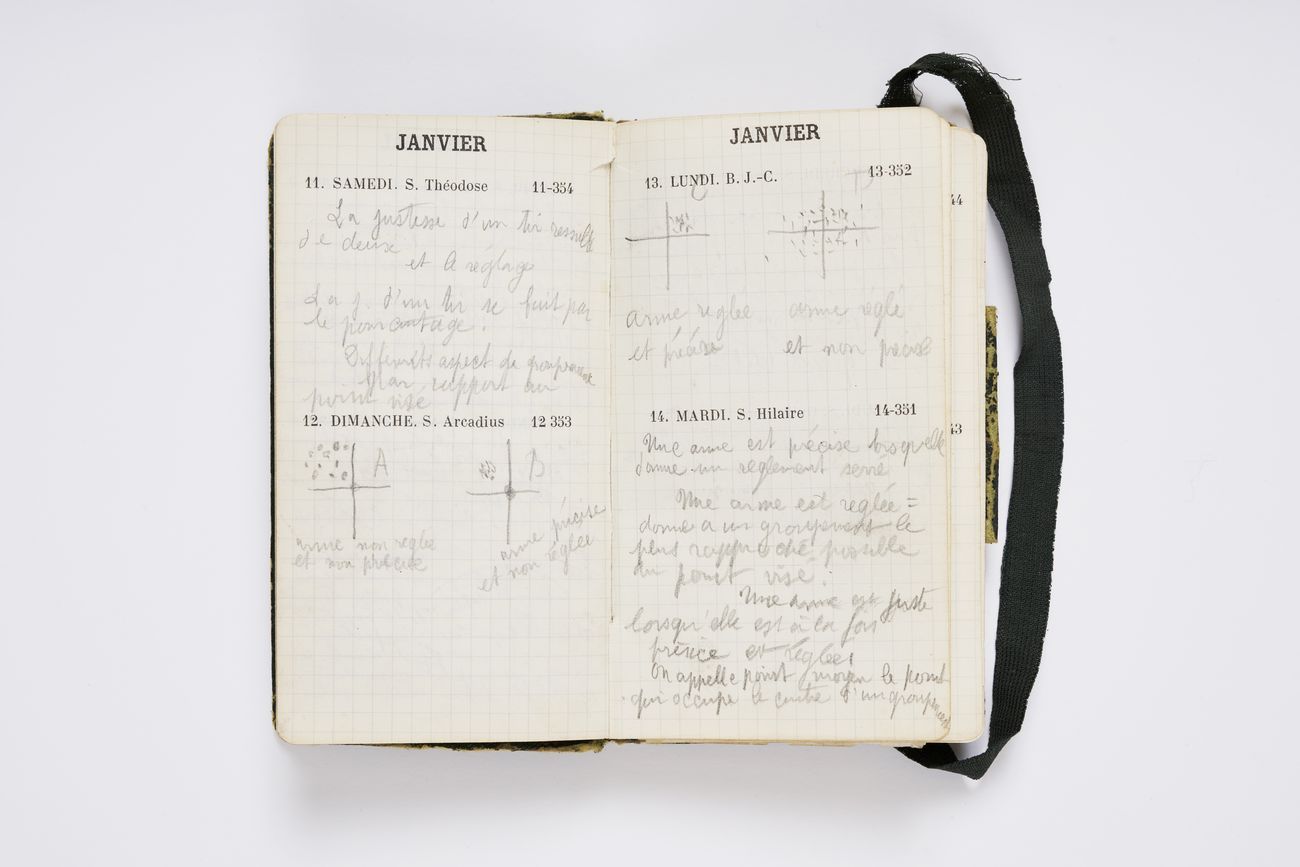 JANVIER
11. SAMEDI. S. Théodose 11-354
La justesse d'un tir resulte
de deux
et le réglage
La j. d'un tir se fait par
le pourcentage.
Differents aspect de groupement
par rapport au
point visé
12. DIMANCHE. S. Arcadius 12 353
A
B
arme non reglée
et non précise
arme précise
et non réglée
JANVIER
13. LUNDI. B. J.-C. 13-352
C
D
arme reglée
et précise
arme réglé
et non précise
14. MARDI. S. Hilaire 14-351
Une arme est précise lorsquelle
donne un reglement serré
Une arme est reglée =
donne a un groupement le
plus rapproché possible
du point visé.
Une arme est juste
lorsqu'elle est à la fois
présice et réglée
On appelle point moyen le point
qui occupe le centre d'un groupement
44
43